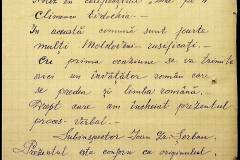 Climanco Evdochia. —
In această comună sunt foarte
mulți Moldoveni rusificați. —
Cu prima ocaziune se va trimite
aici un învățător român care
să predea și limba română. —
Drept care am încheiat prezentul
proces-verbal. —
Subinspector Ioan Gr. Șerban
Prezentul este conform cu originalul.